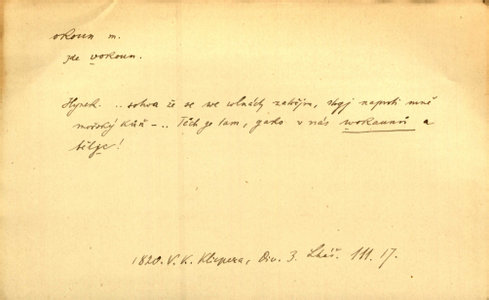 okoun m.
zde vokoun.
Hynek. .. sotva že se we wlnách zakryju, stogj naproti mně
mořský kůň -.. Těch ge tam, gako v nás wokaunů a
bělje!
1820. V. K. Klicpera, Div. 3. Lhář. III. 17.